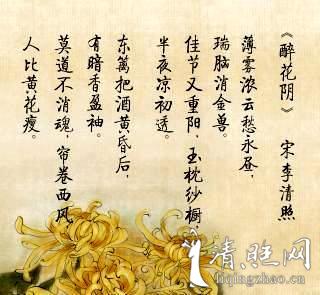 《醉花阴》 宋 李清照
薄雾浓云愁永昼，
瑞脑消金兽。
佳节又重阳，玉枕纱橱，
半夜凉初透。
东篱把酒黄昏后，
有暗香盈袖。
莫道不消魂，帘卷西风，
人比黄花瘦。
清旺网
liqingzhao.cn